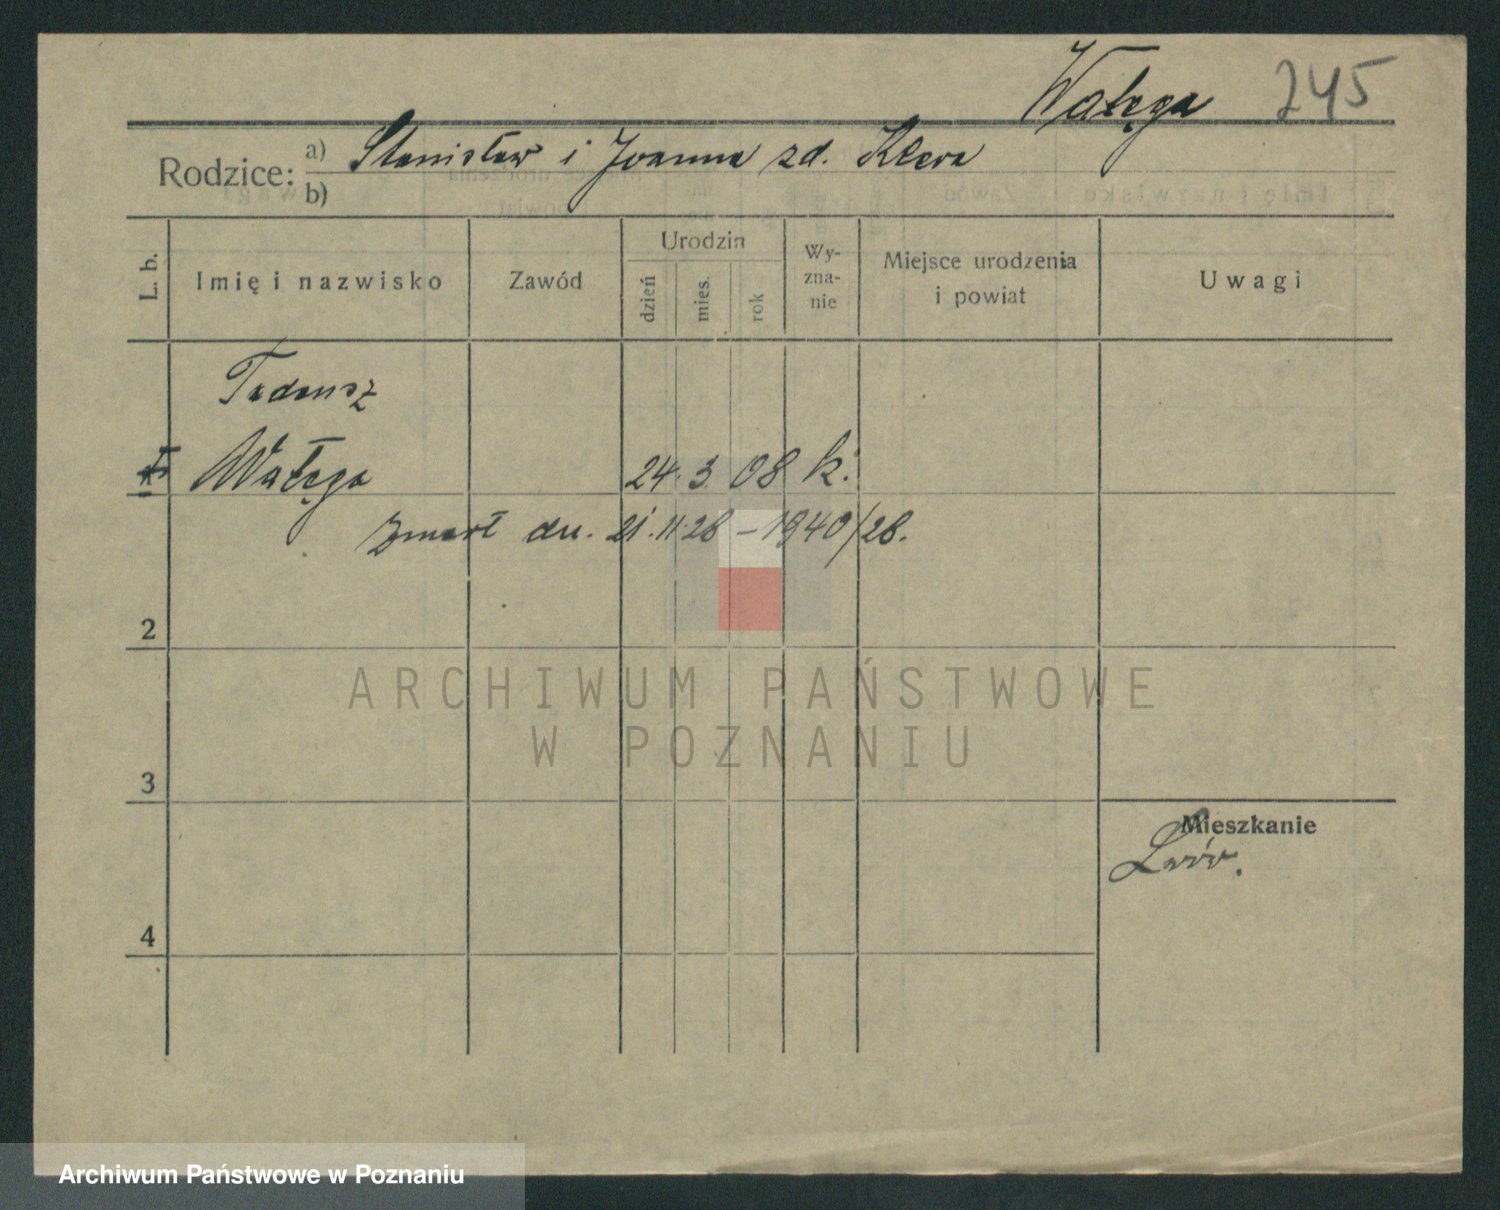 Wałęga 245
Rodzice: a) Stanisław i Joanna zd.
b)
L. b. Imię i nazwisko Zawód Urodzin dzień mies. rok Wy-zna-nie Miejsce urodzenia i powiat Uwagi
Tadeusz
Wałęga 24. 3. 08 k.
zmarł dn. 21.11.28 – 1940/28.
2
ARCHIWUM PAŃSTWOWE
W POZNANIU
3
Mieszkanie
Lwów.
4
Archiwum Państwowe w Poznaniu